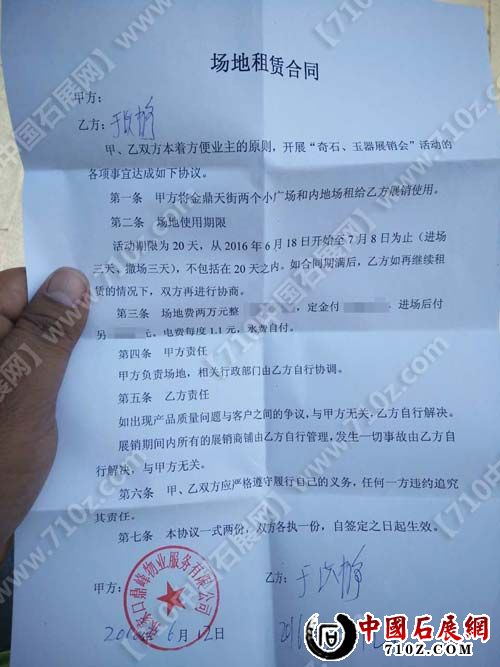 场地租赁合同
甲方：
乙方：
甲、乙双方本着方便业主的原则，开展“奇石、玉器展销会”活动的
各项事宜达成如下协议。
第一条 甲方将金鼎天街两个小广场和内地场租给乙方展销使用。
第二条 场地使用期限
活动期限为 20 天，从 2016 年 6 月 18 日开始至 7 月 8 日为止（进场
三天、撤场三天），不包括在 20 天之内。如合同期满后，乙方如再继续租
赁的情况下，双方再进行协商。
第三条 场地费两万元整 定金付 进场后付
另 元，电费每度 1.1 元，水费自付。
第四条 甲方责任
甲方负责场地，相关行政部门由乙方自行协调。
第五条 乙方责任
如出现产品质量问题与客户之间的争议，与甲方无关，乙方自行解决。
展销期间内所有的展销商铺由乙方自行管理，发生一切事故由乙方自
行解决，与甲方无关。
第六条 甲、乙双方应严格遵守履行自己的义务，任何一方违约追究
其责任。
第七条 本协议一式两份，双方各执一份，自签定之日起生效。
甲方：
乙方：
张家口鼎峰物业服务有限公司
2016年 6月 12日
中国石展网
710z.com
【710z.com中国石展网】